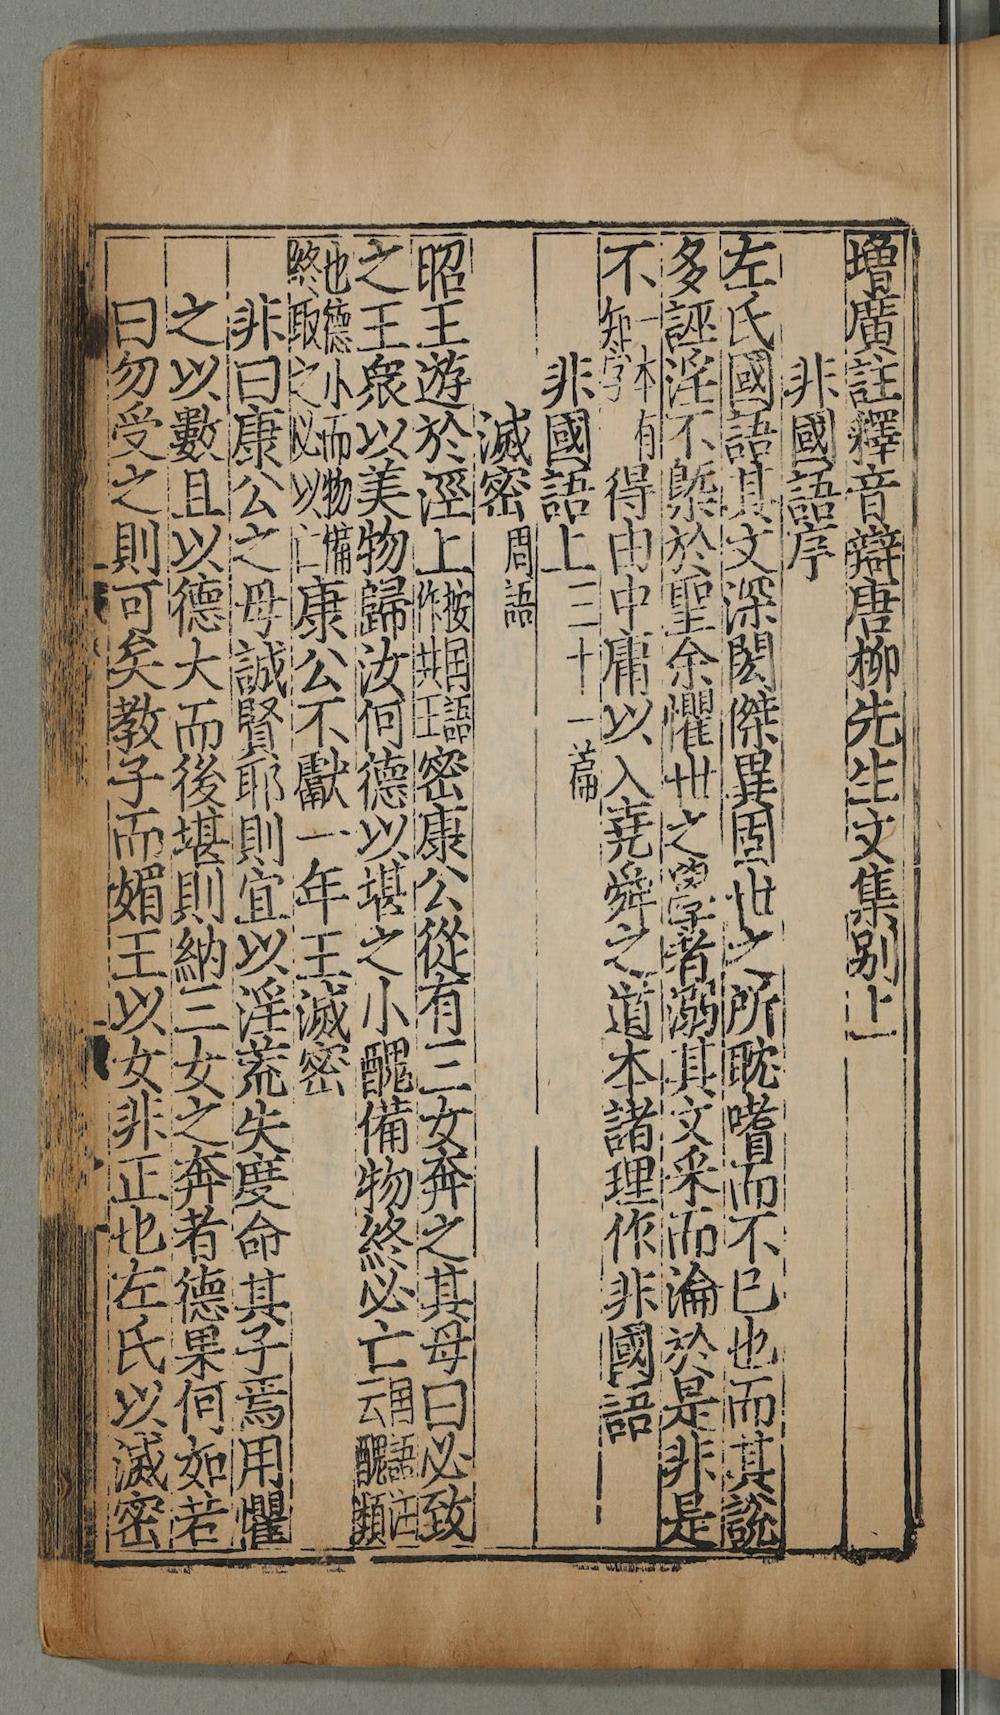 增廣註釋音辯唐柳先生文集别上
非國語序
左氏國語其文深閎傑異固世之所耽嗜而不已也而其說
多誣淫不槩於聖余懼世之學者溺其文采而淪於是非是
不一本有知字得由中庸以入堯舜之道本諸理作非國語
非國語上三十一篇
滅密周語
昭王遊於涇上按国語作共王密康公從有三女奔之其母曰必致
之王衆以美物歸汝何德以堪之小醜備物終必亡国語注云醜類
也德小而物備終取之必以亡康公不獻一年王滅密
非曰康公之母誠賢耶則宜以淫荒失度命其子焉用懼
之以數且以德大而後堪則納三女之奔者德果何如若
曰勿受之則可矣教子而媚王以女非正也左氏以滅密